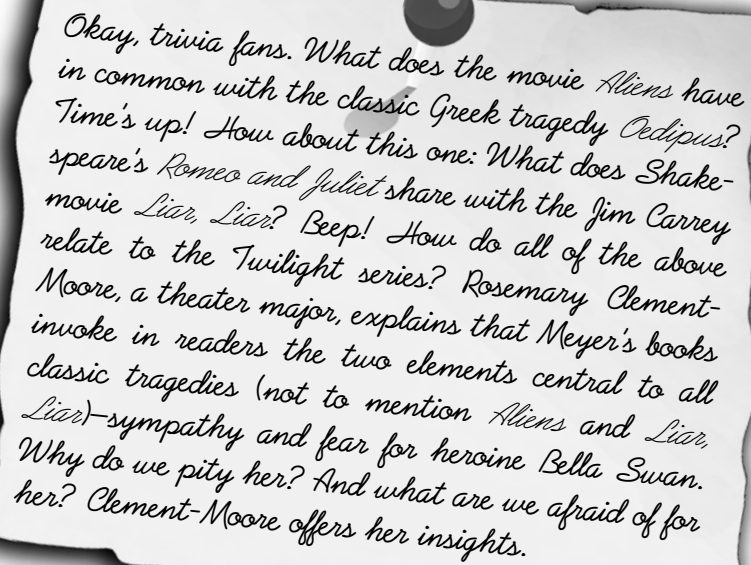 Okay, trivia fans. What does the movie Aliens have
in common with the classic Greek tragedy Oedipus?
Time's up! How about this one: What does Shake-
speare's Romeo and Juliet share with the Jim Carrey
movie Liar, Liar? Beep! How do all of the above
relate to the Twilight series? Rosemary Clement-
Moore, a theater major, explains that Meyer's books
invoke in readers the two elements central to all
classic tragedies (not to mention Aliens and Liar,
Liar)—sympathy and fear for heroine Bella Swan.
Why do we pity her? And what are we afraid of for
her? Clement-Moore offers her insights.